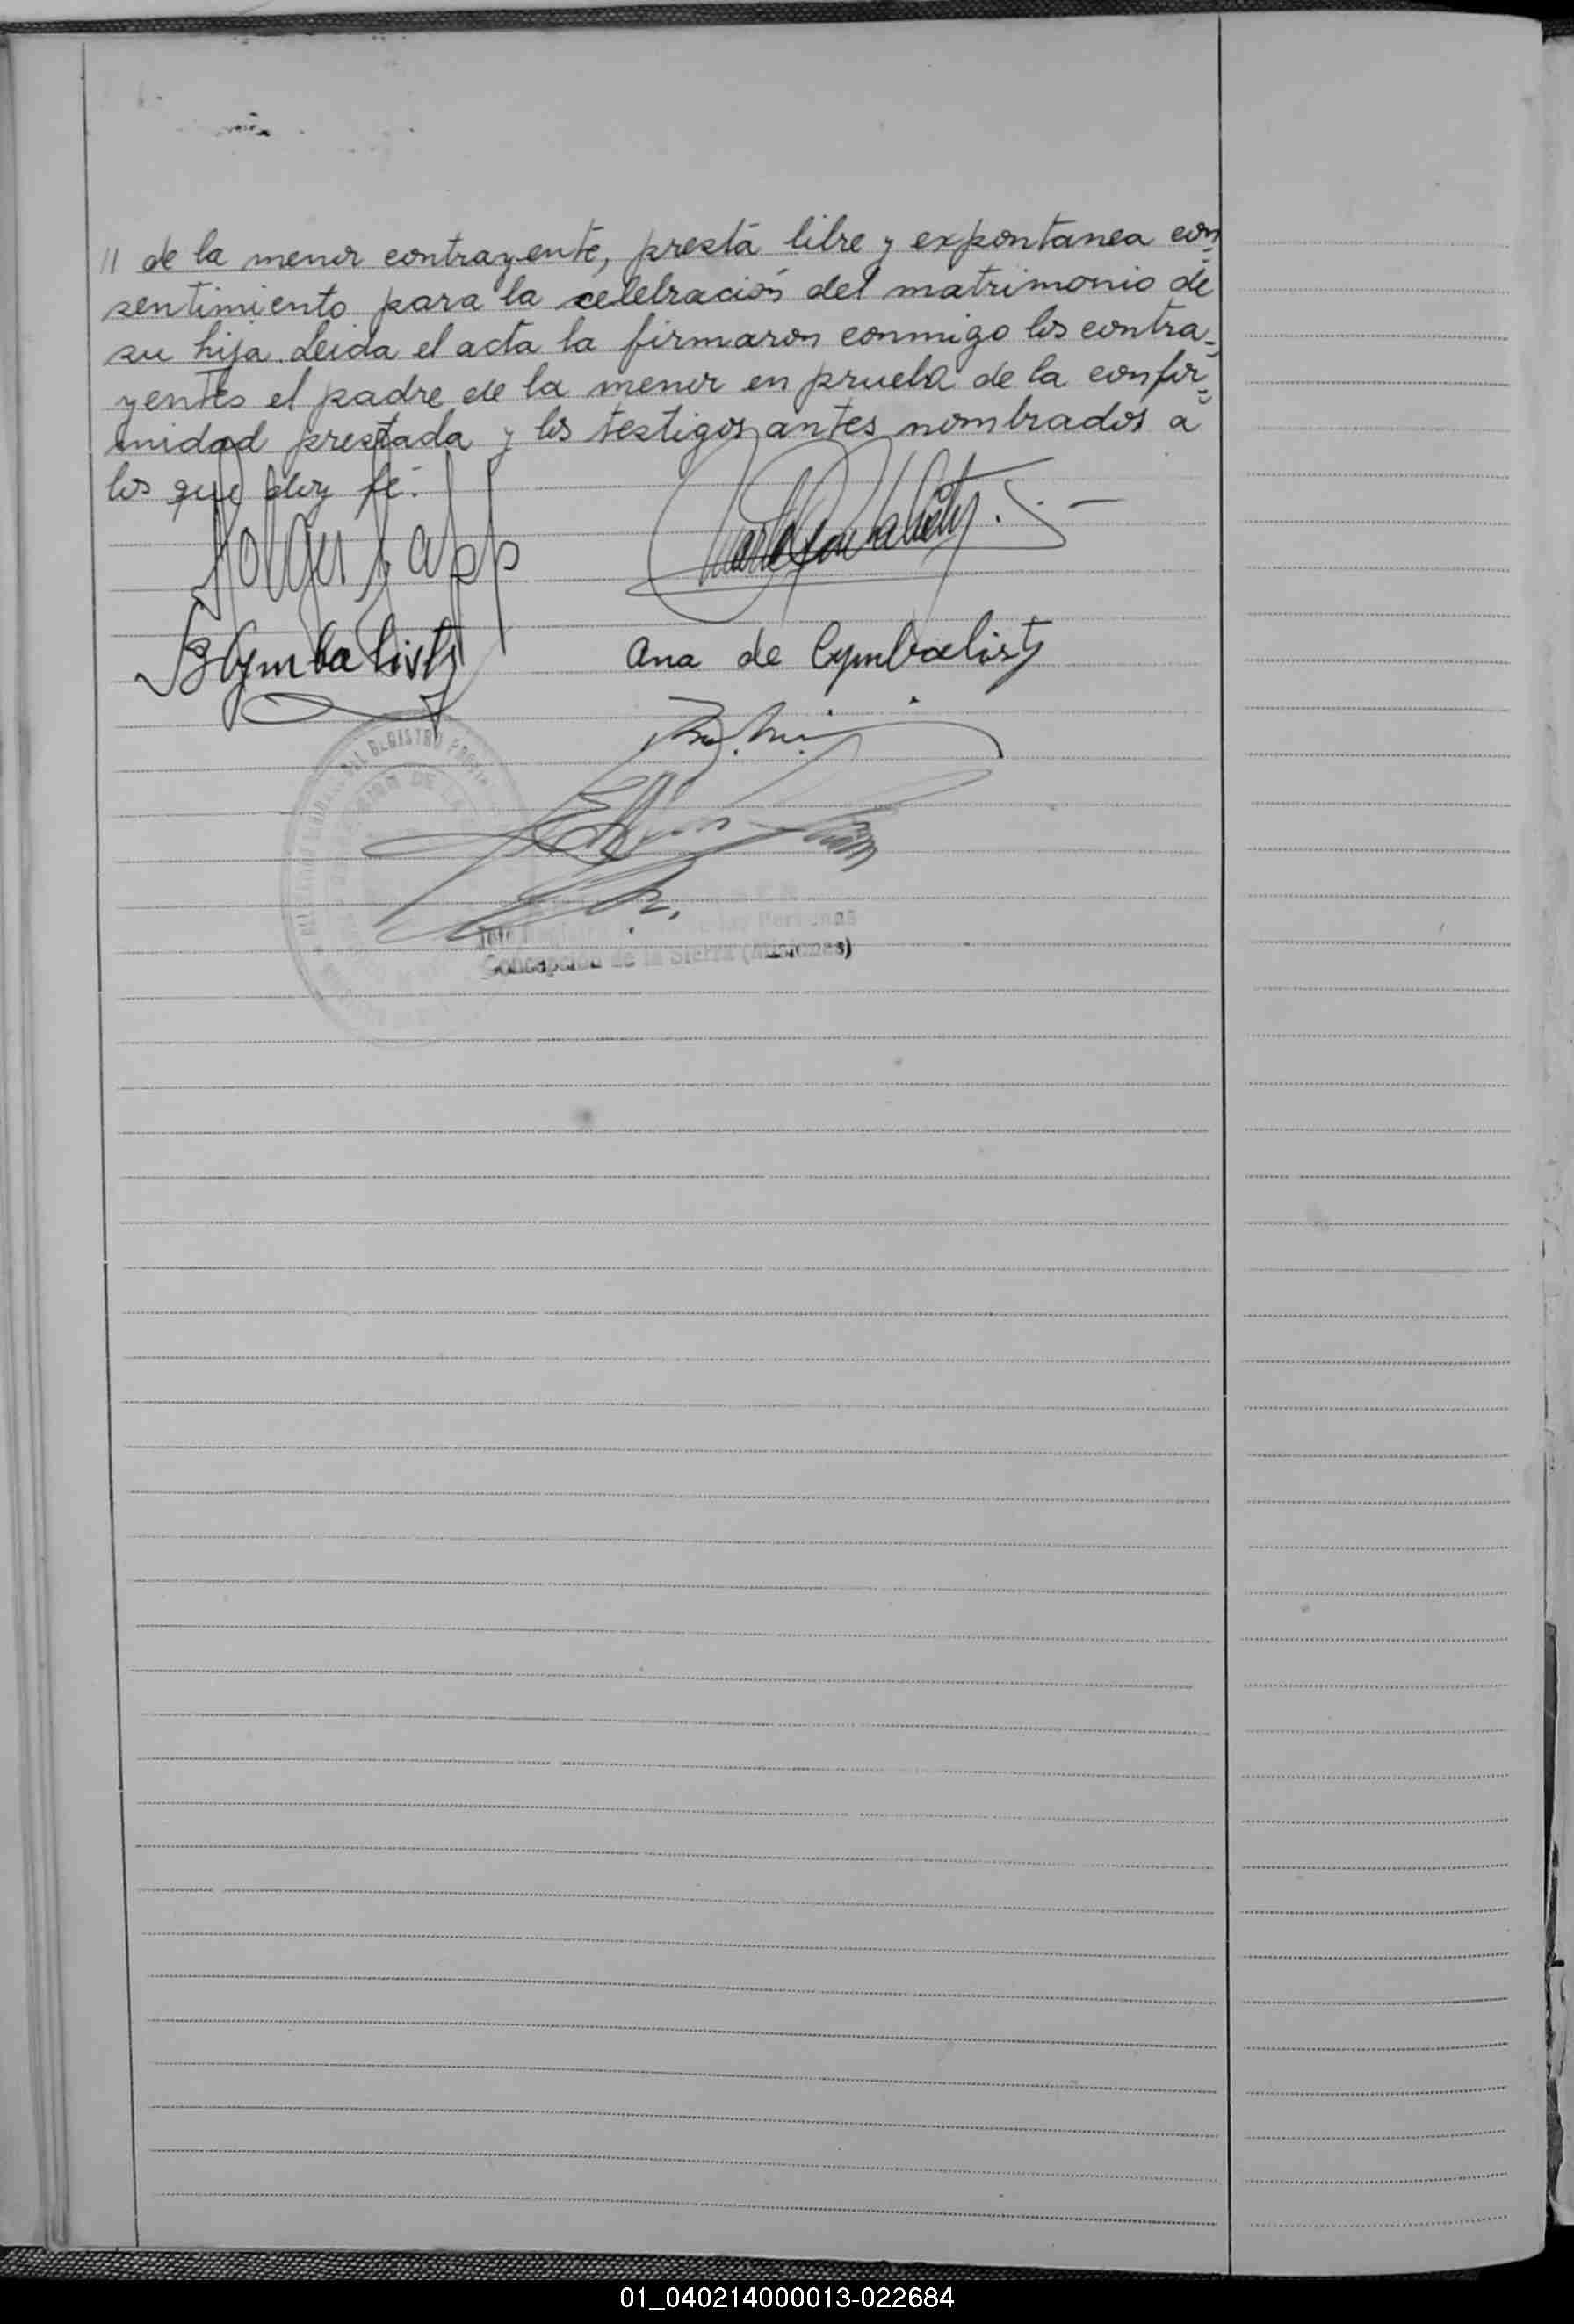 // de la menor contrayente, prestá libre y expontanea con=
sentimiento para la celebración del matrimonio de
su hija. Leida el acta la firmaron conmigo los contra=
yentes el padre de la menor en prueba de la confor=
midad prestada y los testigos antes nombrados a
los que doy fé.
Cymbalisty
Ana de Cymbalisty
DEL REGISTRO
DE LA
de las Personas
Concepción de la Sierra (Misiones)
01_040214000013-022684